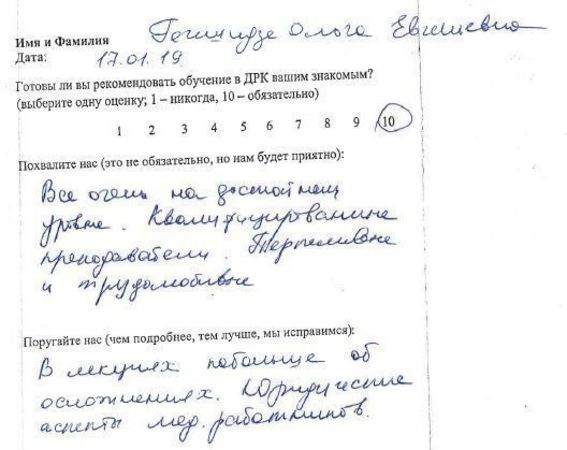 Имя и Фамилия Гегшидзе Ольга Евгениевна
Дата: 17.01.19
Готовы ли вы рекомендовать обучение в ДРК вашим знакомым?
(выберите одну оценку; 1 – никогда, 10 – обязательно)
1 2 3 4 5 6 7 8 9 10
Похвалите нас (это не обязательно, но нам будет приятно):
Все очень на достойном
уровне. Квалифицированные
преподаватели. Терпеливые
и трудолюбивые
Поругайте нас (чем подробнее, тем лучше, мы исправимся):
В лекциях побольше об
осложнениях. Юридические
аспекты мед. работников.